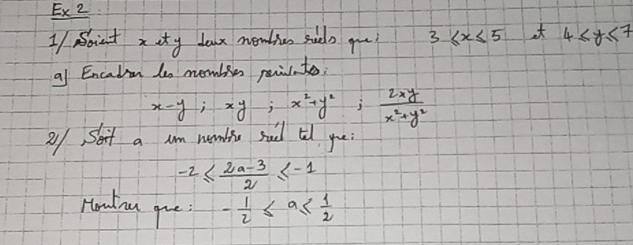 Ex 2
1/ Soient x et y deux nombres réels que: 3 ≤ x ≤ 5 et 4 ≤ y ≤ 7
a) Encadrer les nombres suivants:
x-y ; xy ; x²+y² ; 2xy/(x²+y²)
2/ Soit a un nombre réel tel que:
-2 ≤ (2a-3)/2 ≤ -1
Montrer que: -1/2 ≤ a ≤ 1/2